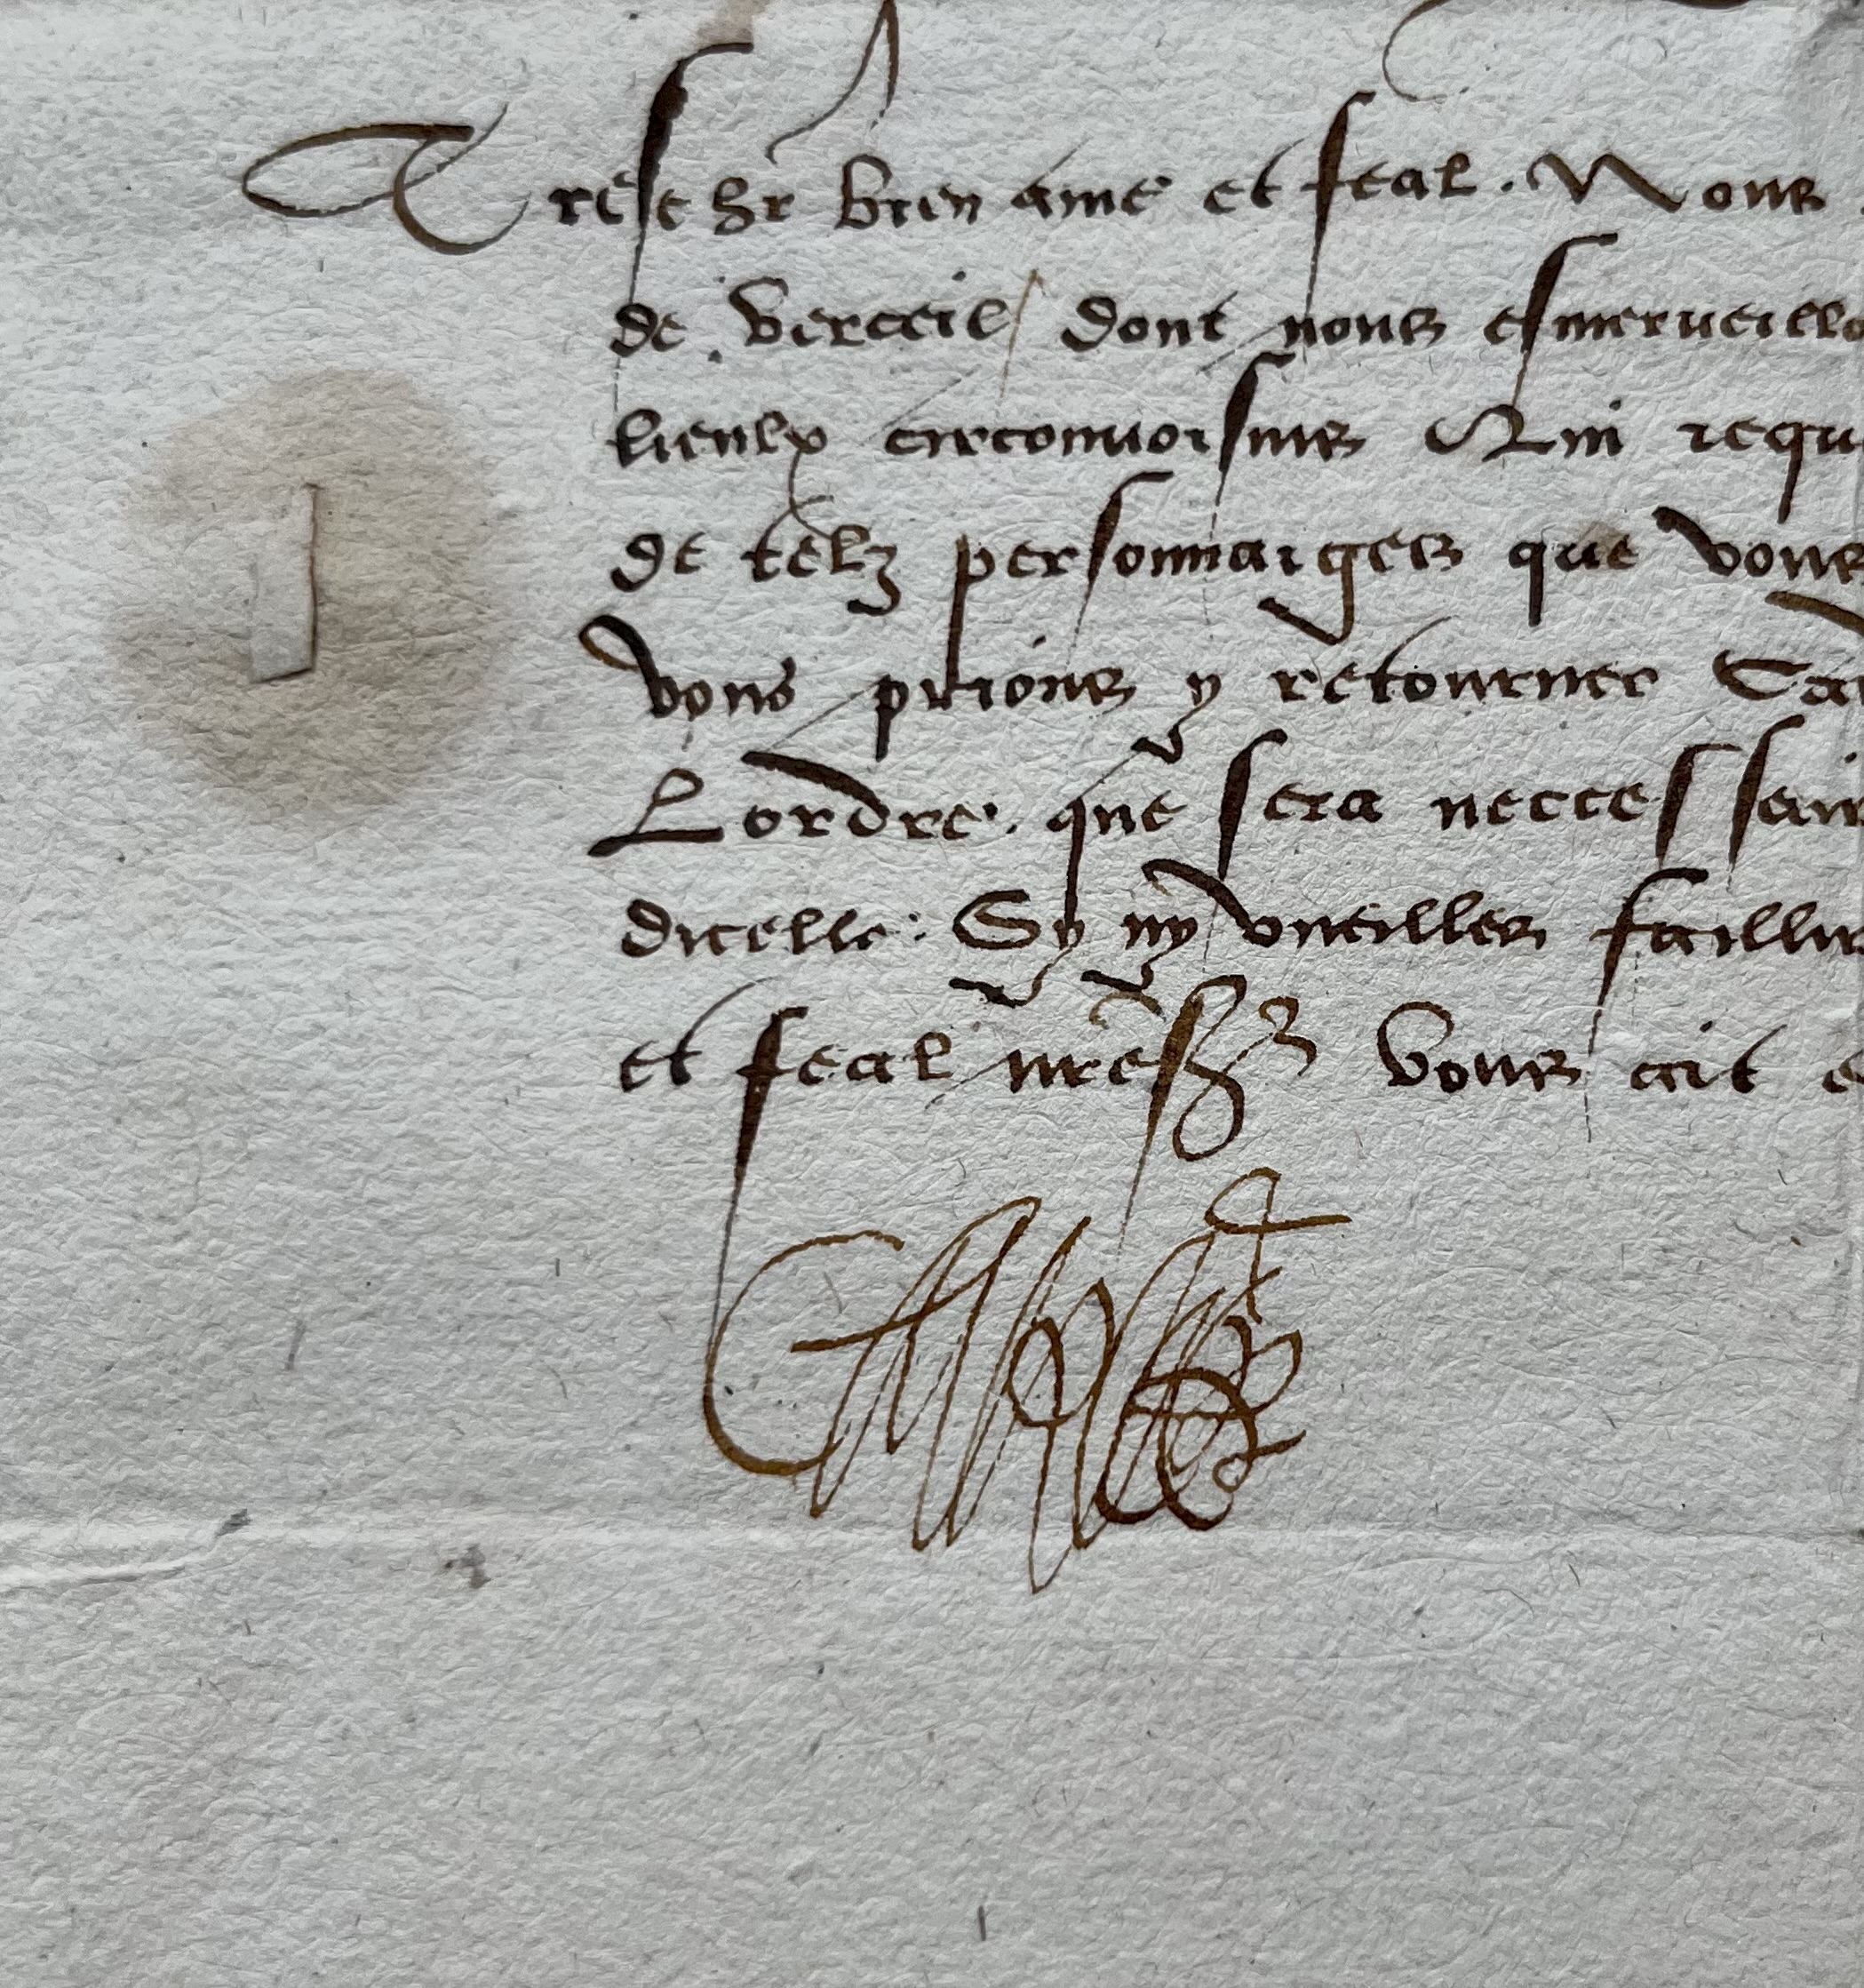 Treschr bien ame et feal. Nous
de verceil / dont nous esmerveillo
lieulx circonvoisins Qui requ
de telz personnaiges que vous
vous prions y retourner
Lordre que sera neccessair
dicelle: Sy ny vueilles faillir
et feal nre sr vous ait e